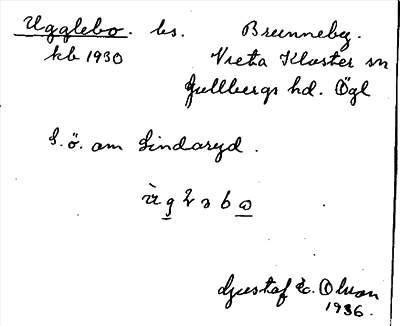 Ugglebo. bs. Brunneby.
kb 1930 Vreta Kloster sn
Gullbergs hd. Ögl
S. ö. om Lindaryd.
Gustaf E. Olson
1936.